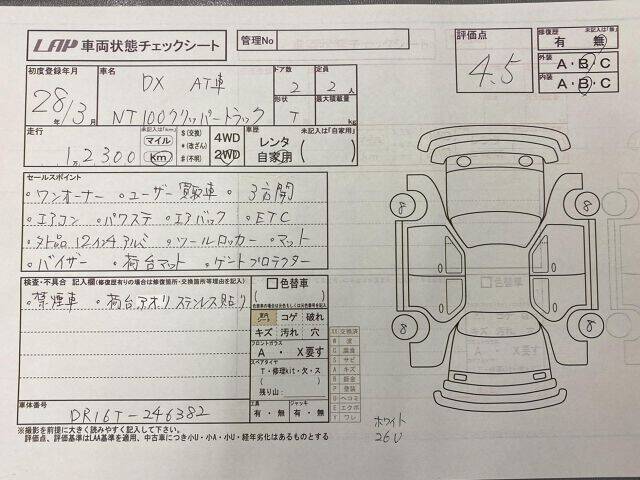 LAP 車両状態チェックシート
管理No
評価点
4.5
修復歴 未記入は「無」
有 無
外装 A・B・C
内装 A・B・C
初度登録年月
28年/3月
車名
DX AT車
NT100クリッパートラック
ドア数 2
定員 2人
形状 T
最大積載量 kg
走行 未記入は「km」
1万2300
マイル
km
$(交換)
*(改ざん)
#(不明)
4WD
2WD
車歴 未記入は「自家用」
レンタ
自家用
セールスポイント
・ワンオーナー ・ユーザー買取車 ・3方開
・エアコン ・パワステ ・エアバック ・ETC
・外品12インチアルミ ・ツールロッカー ・マット
・バイザー ・荷台マット ・ゲートプロテクター
検査・不具合 記入欄(修復歴有りの場合は修復箇所・交換箇所等理由を記入)
・禁煙車 ・荷台アオリ ステンレス貼り
色替車
コゲ 破れ
キズ 汚れ 穴
フロントガラス
A ・ X要す
スペアタイヤ
T・修理kit・欠・ス
残り山:
工具
有・無
ジャッキ
有・無
XX 交換済
W 波
C 腐食
S サビ
A キズ
B 鈑金
P 塗装
U ヘコミ
E エクボ
Y ワレ
8 8
色替車
8 8
車体番号
DR16T-246382
ホワイト
26U
※撮影を前提に大きく読みやすく記入して下さい。
評価点、評価基準はLAA基準を適用、中古車につき小U・小A・小U・経年劣化はあるものとする